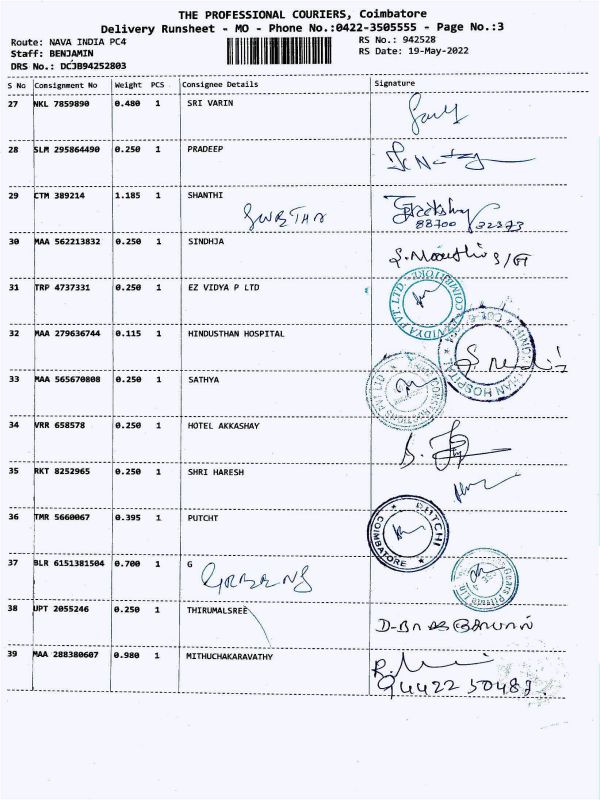 THE PROFESSIONAL COURIERS, Coimbatore
Delivery Runsheet - MO - Phone No.:0422-3505555 - Page No.:3
Route: NAVA INDIA PC4 RS No.: 942528
Staff: BENJAMIN RS Date: 19-May-2022
DRS No.: DCJB94252803
S No Consignment No Weight PCS Consignee Details Signature
27 NKL 7859890 0.480 1 SRI VARIN
28 SLM 295864490 0.250 1 PRADEEP
29 CTM 389214 1.185 1 SHANTHI
88700 32373
30 MAA 562213832 0.250 1 SINDHJA
31 TRP 4737331 0.250 1 EZ VIDYA P LTD
VIDYA PVT. LTD. COIMBATORE
32 MAA 279636744 0.115 1 HINDUSTHAN HOSPITAL
HINDUSTHAN HOSPITAL
33 MAA 565670808 0.250 1 SATHYA
34 VRR 658578 0.250 1 HOTEL AKKASHAY
35 RKT 8252965 0.250 1 SHRI HARESH
36 TMR 5660067 0.395 1 PUTCHT
PUTCHI COIMBATORE
37 BLR 6151381504 0.700 1 G
38 UPT 2055246 0.250 1 THIRUMALSREE
39 MAA 288380607 0.980 1 MITHUCHAKARAVATHY